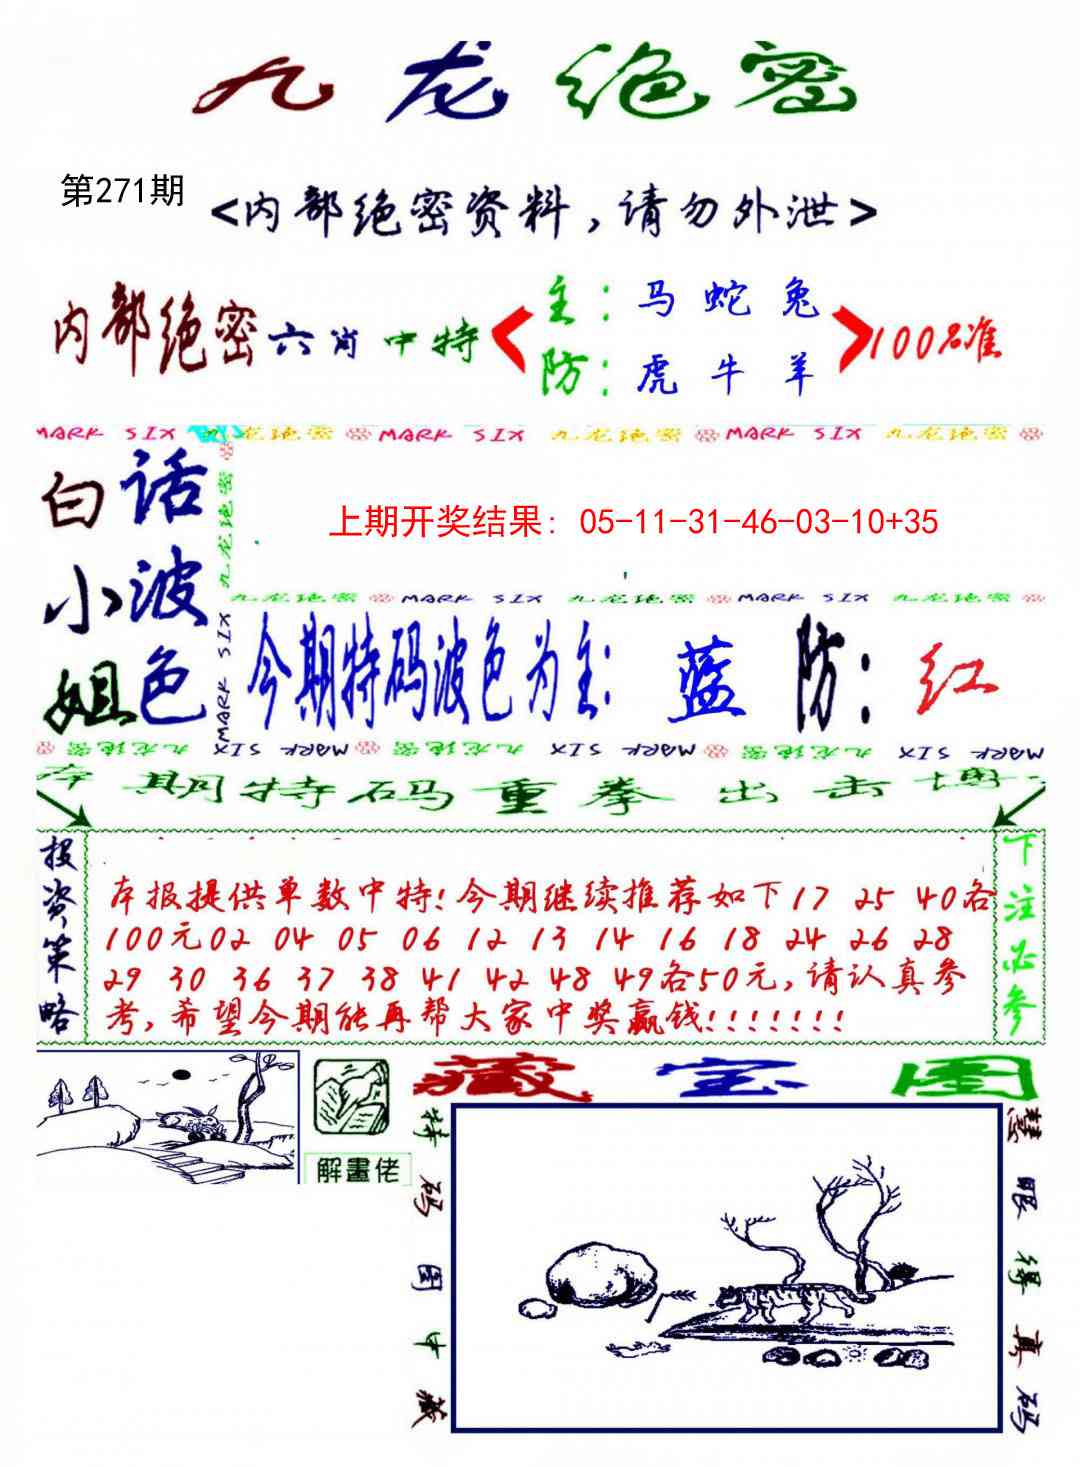 九龙绝密
第271期
<内部绝密资料，请勿外泄>
内部绝密六肖中特
主：马 蛇 兔
防：虎 牛 羊
100%准
MARK SIX 九龙绝密 MARK SIX 九龙绝密 MARK SIX 九龙绝密
白小姐
话波色
九龙绝密
MARK SIX
上期开奖结果: 05-11-31-46-03-10+35
九龙绝密 MARK SIX 九龙绝密 MARK SIX 九龙绝密
今期特码波色为主: 蓝 防: 红
九龙绝密 MARK SIX 九龙绝密 MARK SIX 九龙绝密 MARK SIX
本期特码重拳出击博
投资策略
本报提供单数中特!今期继续推荐如下17 25 40各
100元02 04 05 06 12 13 14 16 18 24 26 28
29 30 36 37 38 41 42 48 49各50元,请认真参
考,希望今期能再帮大家中奖赢钱!!!!!!!
下注必参
解畫佬
藏宝图
特码图中藏
慧眼得真码